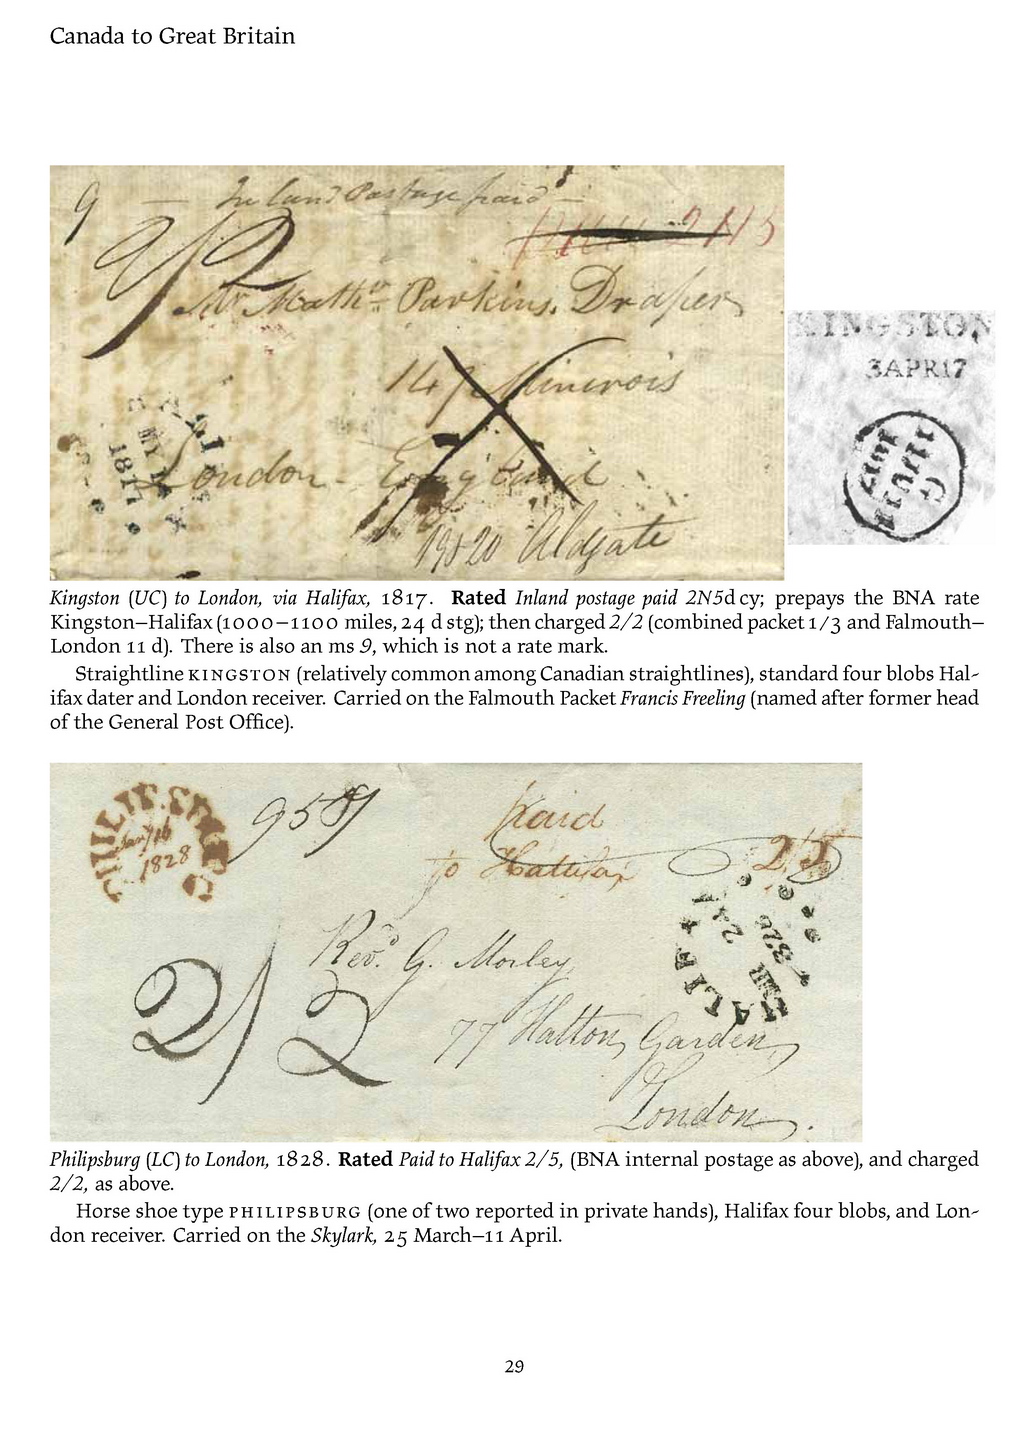 Canada to Great Britain
9 — Inland Postage paid —
2/2
Mr. Matthw. Parkins, Draper
147 Minerois
London – England
19 & 20 Aldgate
MY
1817
KINGSTON
3APR17
G
Kingston (UC) to London, via Halifax, 1817. Rated Inland postage paid 2N5d cy; prepays the BNA rate
Kingston–Halifax (1000–1100 miles, 24 d stg); then charged 2/2 (combined packet 1/3 and Falmouth–
London 11 d). There is also an ms 9, which is not a rate mark.
Straightline KINGSTON (relatively common among Canadian straightlines), standard four blobs Hal-
ifax dater and London receiver. Carried on the Falmouth Packet Francis Freeling (named after former head
of the General Post Office).
PHILIPSBURG
Jany 16
1828
paid
to Hallifax 2/5
Revd. G. Morley
2/2
77 Hatton Garden
London.
Philipsburg (LC) to London, 1828. Rated Paid to Halifax 2/5, (BNA internal postage as above), and charged
2/2, as above.
Horse shoe type PHILIPSBURG (one of two reported in private hands), Halifax four blobs, and Lon-
don receiver. Carried on the Skylark, 25 March–11 April.
29